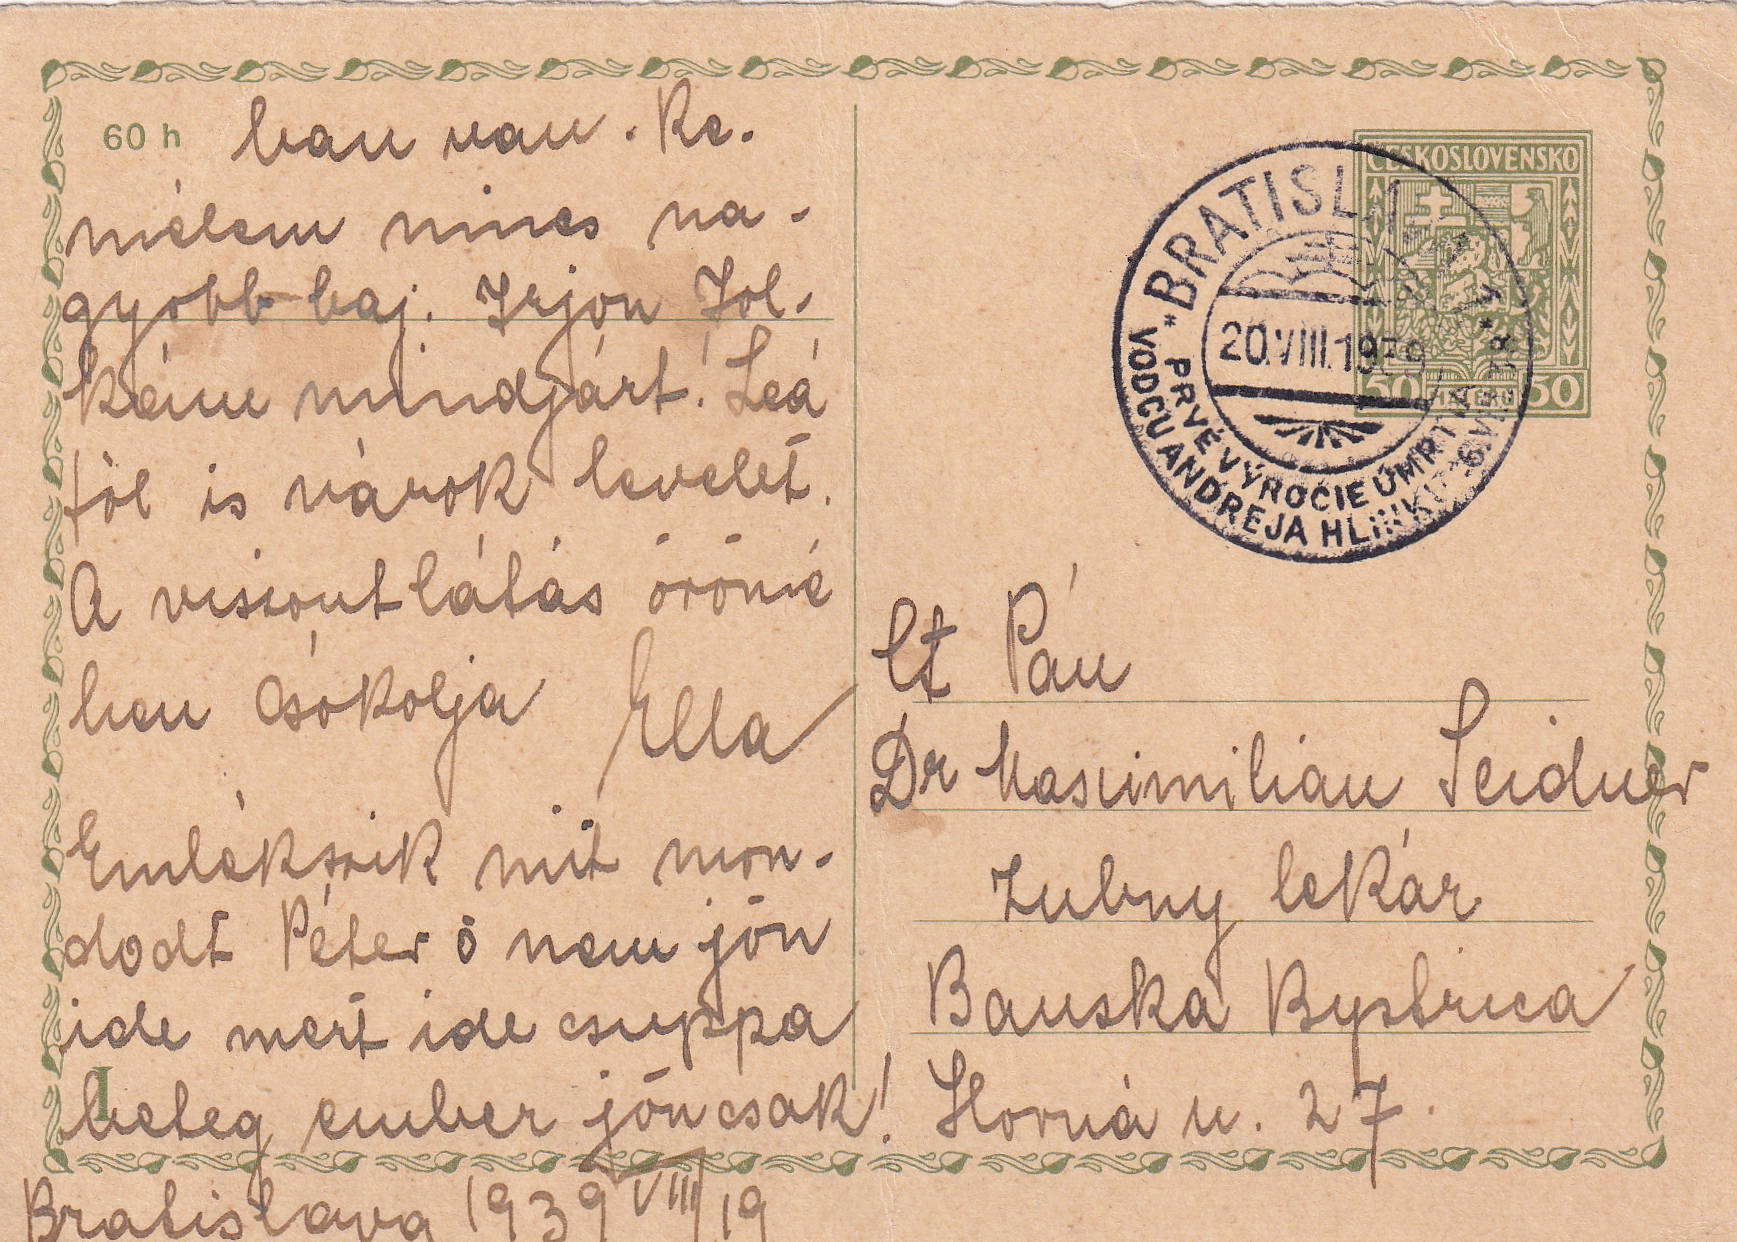 60 h
ban van. Re-
mélem nincs na-
gyobb baj. Irjon Jol-
kám mindjárt! Leá
tól is várok levelet.
A viszontlátás örömé
ben csókolja Ella
Emlékszik mit mon-
dodt Péter ő nem jön
ide mert ide csuppa
beteg ember jön csak!
Bratislava 1939 VIII/19
I
ČESKOSLOVENSKO
50 HALERŮ 50
* BRATISLAVA *
20.VIII.1939
PRVÉ VÝROČIE ÚMRTIA
VODCU ANDREJA HLINKU
Ct Pán
Dr Maximilián Seidner
Zubny lekár
Banska Bystrica
Horná u. 27.